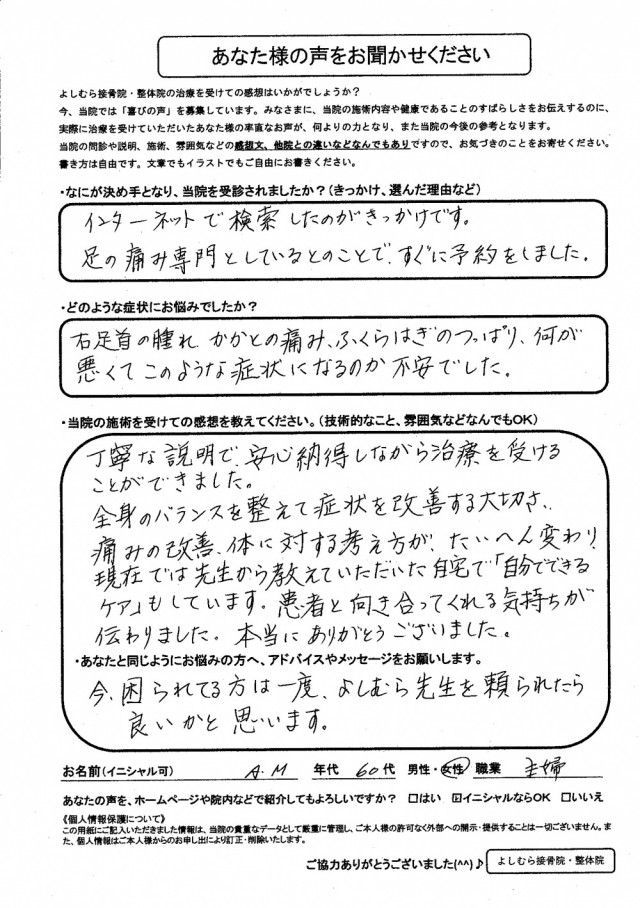 あなた様の声をお聞かせください
よしむら接骨院・整体院の治療を受けての感想はいかがでしょうか？
今、当院では「喜びの声」を募集しています。みなさまに、当院の施術内容や健康であることのすばらしさをお伝えするのに、
実際に治療を受けていただいたあなた様の率直なお声が、何よりの力となり、また当院の今後の参考となります。
当院の問診や説明、施術、雰囲気などの感想文、他院との違いなどなんでもありですので、お気づきのことをお寄せください。
書き方は自由です。文章でもイラストでもご自由にお書きください。
・なにが決め手となり、当院を受診されましたか？(きっかけ、選んだ理由など)
インターネットで検索したのがきっかけです。
足の痛み専門としているとのことで、すぐに予約をしました。
・どのような症状にお悩みでしたか？
右足首の腫れ かかとの痛み、ふくらはぎのつっぱり、何が
悪くてこのような症状になるのか不安でした。
・当院の施術を受けての感想を教えてください。(技術的なこと、雰囲気などなんでもOK)
丁寧な説明で、安心納得しながら治療を受ける
ことができました。
全身のバランスを整えて症状を改善する大切さ、
痛みの改善、体に対する考え方が、たいへん変わり、
現在では先生から教えていただいた自宅で「自分でできる
ケア」もしています。患者と向き合ってくれる気持ちが
伝わりました。本当にありがとうございました。
・あなたと同じようにお悩みの方へ、アドバイスやメッセージをお願いします。
今、困られてる方は一度、よしむら先生を頼られたら
良いかと思います。
お名前(イニシャル可) A.M 年代 60代 男性・女性 職業 主婦
あなたの声を、ホームページや院内などで紹介してもよろしいですか？ □はい ☑イニシャルならOK □いいえ
《個人情報保護について》
この用紙にご記入いただきました情報は、当院の貴重なデータとして厳重に管理し、ご本人様の許可なく外部への開示・提供することは一切ございません。ま
た、個人情報はご本人様からのお申し出により訂正・削除いたします。
ご協力ありがとうございました(^^)♪ よしむら接骨院・整体院